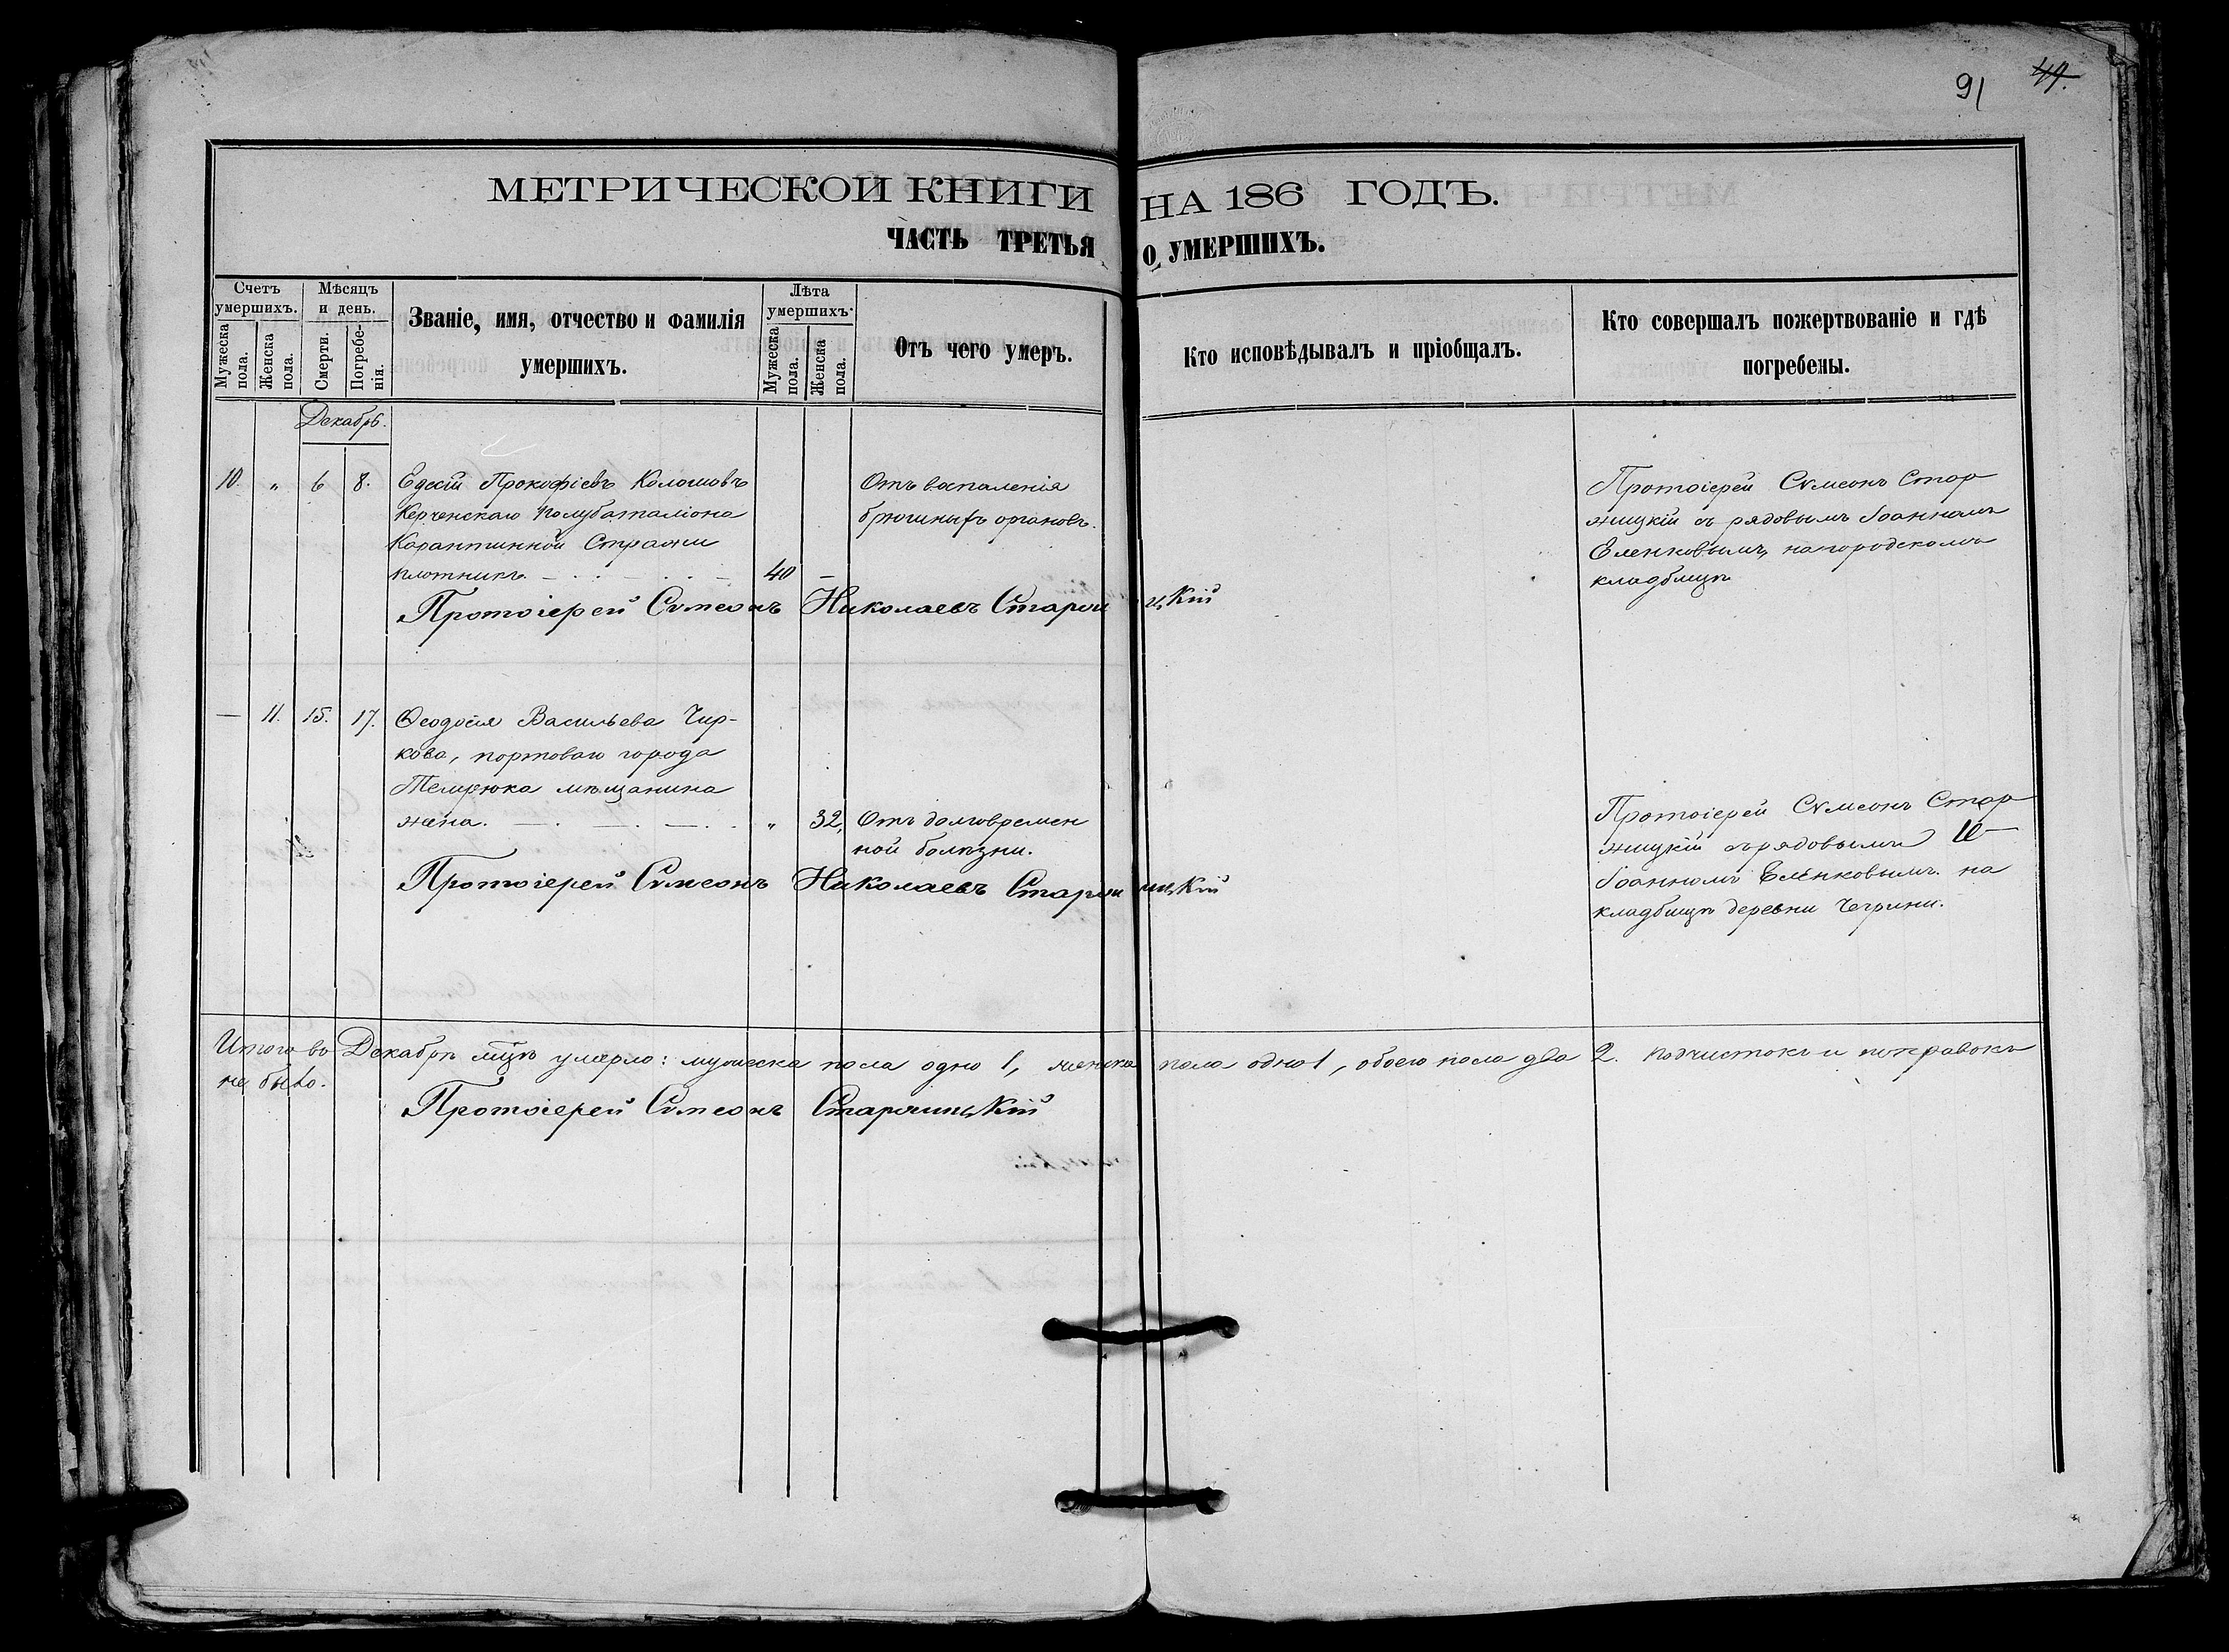 91 44.
МЕТРИЧЕСКОЙ КНИГИ НА 186 ГОДЪ.
ЧАСТЬ ТРЕТЬЯ О УМЕРШИХЪ.
Счетъ умершихъ.
Мужеска пола.
Женска пола.
Мѣсяцъ и день.
Смерти.
Погребенія.
Званіе, имя, отчество и фамилія
умершихъ.
Лѣта умершихъ.
Мужеска пола.
Женска пола.
Отъ чего умеръ.
Кто исповѣдывалъ и пріобщалъ.
Кто совершалъ пожертвованіе и гдѣ
погребены.
Декабрь.
10. " 6 8. Прокофіевъ Колошовъ
Керченскаго полубаталіона
Карантинной Стражи
плотникъ. 40 –
Отъ воспаленія
брюшныхъ органовъ.
Протоіерей Сѵмеонъ Стар
жицкій съ рядовымъ Іоанномъ
Еленковымъ, на городскомъ
кладбищѣ
Протоіерей Сѵмеонъ Николаевъ Старжицкій
— 11. 15. 17. Ѳеодосія Васильева Чир-
кова, портоваго города
Темрюка мѣщанина
жена. " 32,
Отъ долговремен
ной болѣзни.
Протоіерей Сѵмеонъ Стар
жицкій съ рядовымъ
Іоанномъ Еленковымъ на
кладбищѣ деревни
Протоіерей Сѵмеонъ Николаевъ Старжицкій
Итого въ Декабрѣ мцѣ умерло: мужеска пола одно 1, женска пола одно 1, обоего пола два 2. подчистокъ и поправокъ
не было.
Протоіерей Сѵмеонъ Старжицкій